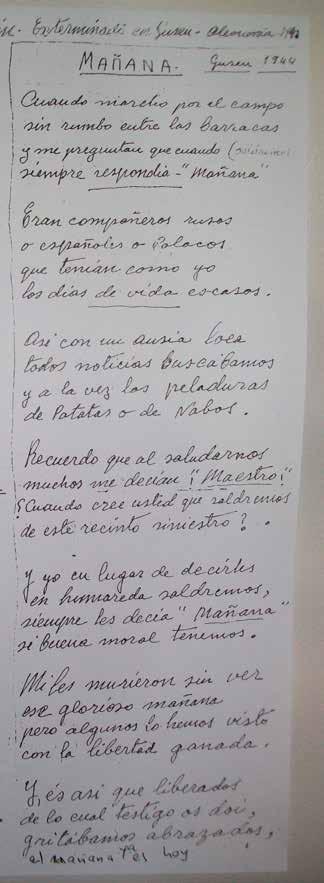 Exterminado en Gusen - Alemania
MAÑANA.
Gusen 1944
Cuando marcho por el campo
sin rumbo entre las barracas
y me preguntan que cuando (saldremos)
siempre respondia - "Mañana"
Eran compañeros rusos
o españoles o Polacos
que tenian como yo
los dias de vida escasos.
Asi con un ansia loca
todos noticias buscábamos
y a la vez las peladuras
de Patatas o de Nabos.
Recuerdo que al saludarnos
muchos me decian ¡"Maestro¡"
¿Cuando cree usted que saldremos
de este recinto siniestro?.
Y yo en lugar de decirles
en humareda saldremos,
siempre les decia "Mañana"
si buena moral tenemos.
Miles murieron sin ver
ese glorioso mañana
pero algunos lo hemos visto
con la libertad ganada.
Y, és asi que liberados
de lo cual testigo os doi,
gritábamos abrazados,
el mañana ya es hoy